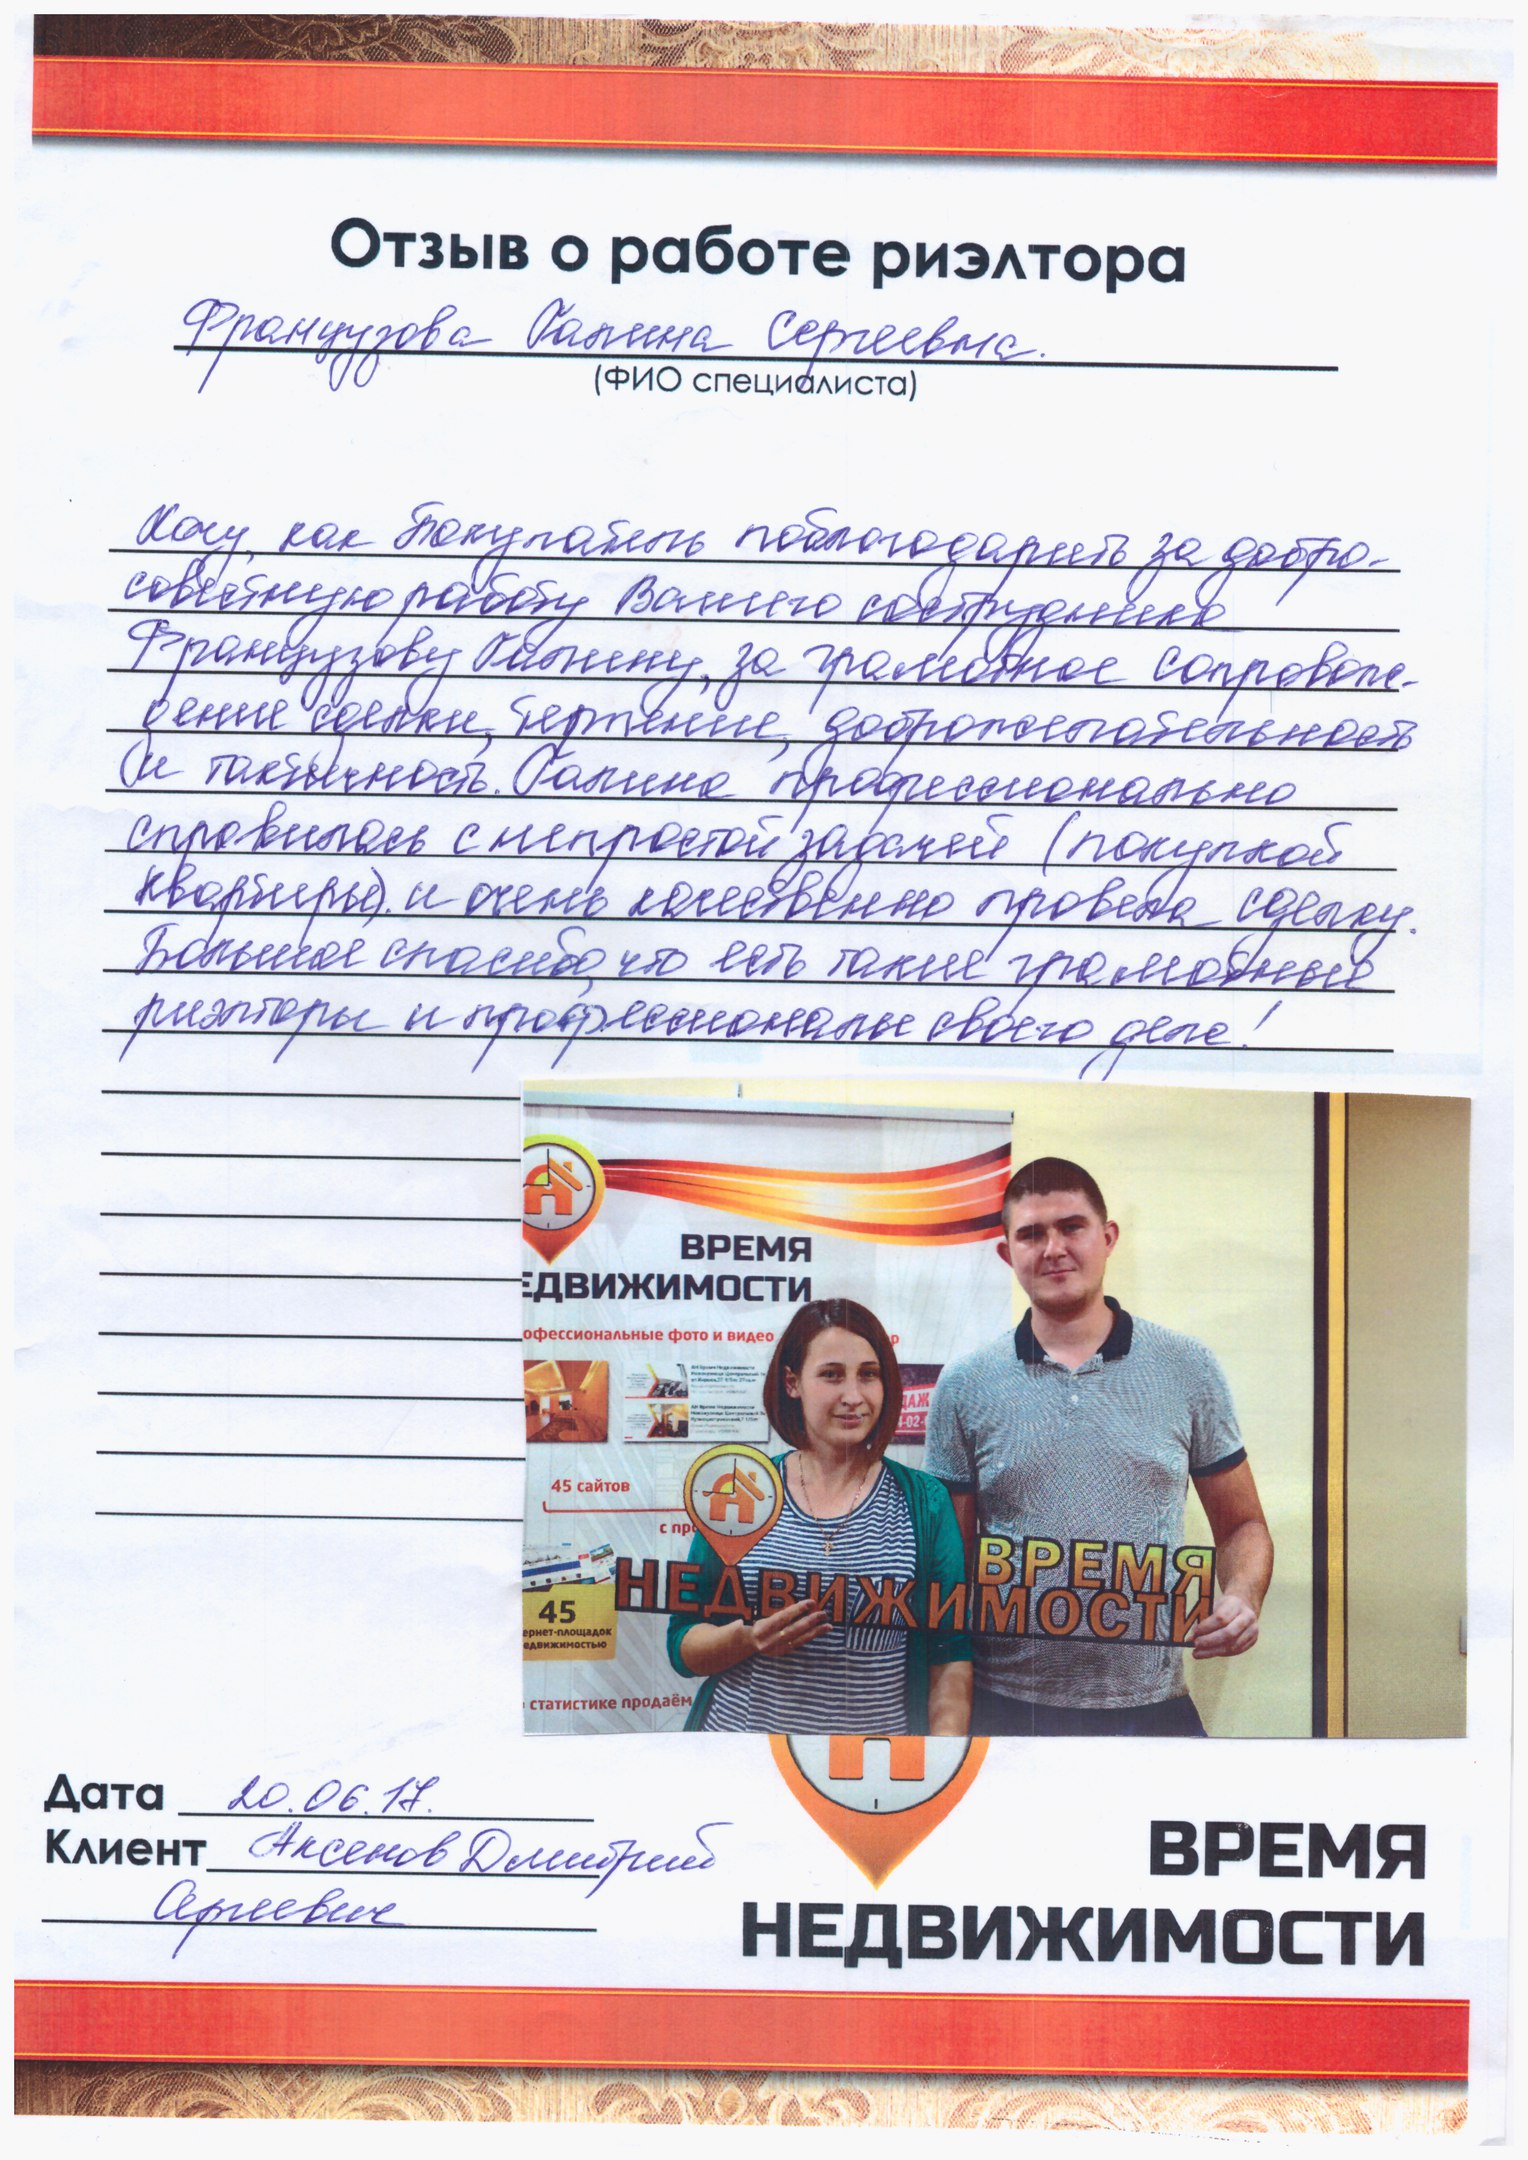 Отзыв о работе риэлтора
Французова Галина Сергеевна.
(ФИО специалиста)
Хочу, как Покупатель поблагодарить за добро-
совестную работу Вашего сотрудника
Французову Галину, за грамотное сопровож-
дение сделки, терпение, доброжелательность
и тактичность. Галина профессионально
справилась с непростой задачей (покупкой
квартиры). и очень качественно провела сделку.
Большое спасибо, что есть такие грамотные
риэлторы и профессионалы своего дела!
ВРЕМЯ
ЕДВИЖИМОСТИ
офессиональные фото и видео
ДАЖ
45 сайтов
с про
ВРЕМЯ
НЕДВИЖИМОСТИ
45
ернет-площадок
едвижимостью
статистике продаём
Дата 20.06.17.
Клиент Аксенов Дмитрий
Сергеевич
ВРЕМЯ
НЕДВИЖИМОСТИ